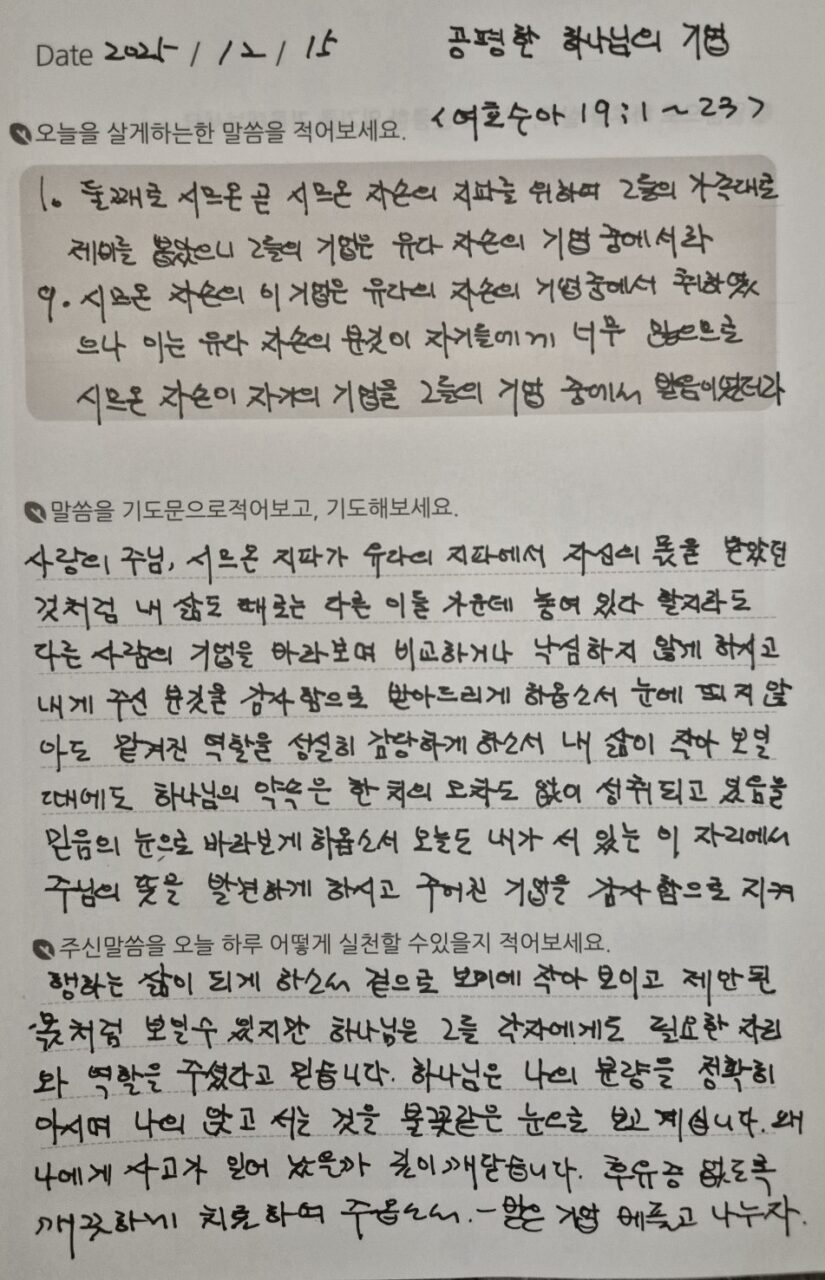 Date 2025 / 12 / 15 공평한 하나님의 기업
오늘을 살게하는한 말씀을 적어보세요. <여호수아 19:1~23>
1. 둘째로 시므온 곧 시므온 자손의 지파를 위하여 그들의 가족대로
제비를 뽑았으니 그들의 기업은 유다 자손의 기업 중에서라
9. 시므온 자손의 이 기업은 유다의 자손의 기업중에서 취하였
으나 이는 유다 자손의 분깃이 자기들에게 너무 많으므로
시므온 자손이 자기의 기업을 그들의 기업 중에서 받음이었더라
말씀을 기도문으로적어보고, 기도해보세요.
사랑의 주님, 시므온 지파가 유다의 지파에서 자신의 몫을 받았던
것처럼 내 삶도 때로는 다른 이들 가운데 놓여 있다 할지라도
다른 사람의 기업을 바라보며 비교하거나 낙심하지 않게 하시고
내게 주신 분깃을 감사함으로 받아드리게 하옵소서 눈에 띄지 않
아도 맡겨진 역할을 성실히 감당하게 하소서 내 삶이 작아 보일
때에도 하나님의 약속은 한 치의 오차도 없이 성취되고 있음을
믿음의 눈으로 바라보게 하옵소서 오늘도 내가 서 있는 이 자리에서
주님의 뜻을 발견하게 하시고 주어진 기업을 감사함으로 지켜
주신말씀을 오늘 하루 어떻게 실천할 수있을지 적어보세요.
행하는 삶이 되게 하소서 겉으로 보기에 작아 보이고 제한된
몫처럼 보일수 있지만 하나님은 그들 각자에게도 필요한 자리
와 역할을 주셨다고 믿습니다. 하나님은 나의 분량을 정확히
아시며 나의 앉고 서는 것을 불꽃같은 눈으로 보고 계십니다. 왜
나에게 사고가 일어 났은가 깊이 깨닫습니다. 후유증 없도록
깨끗하게 치료하여 주옵소서. - 받은 기업 베풀고 나누자.